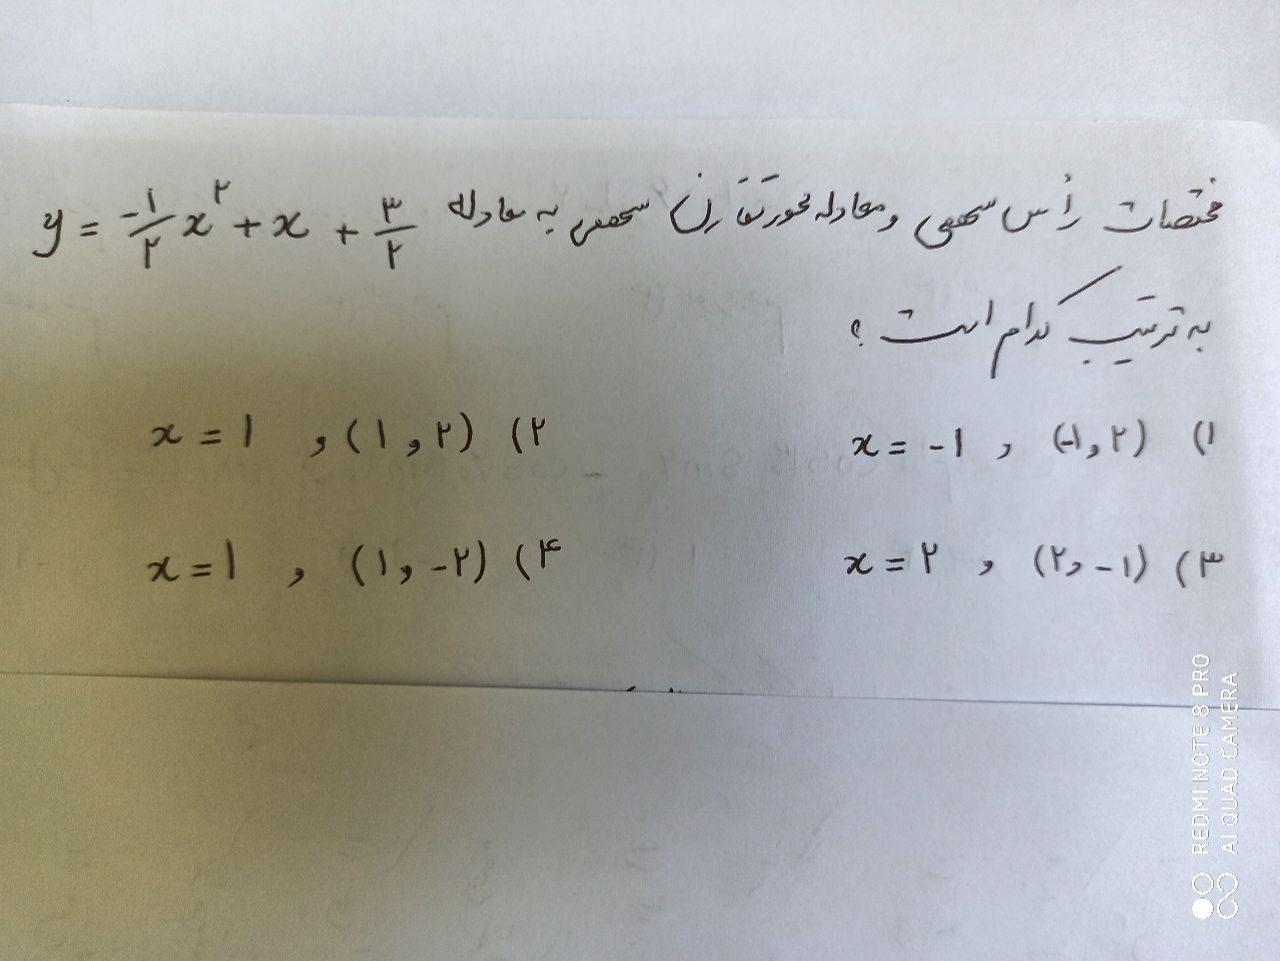 مختصات رأس سهمی و معادله محور تقارن سهمی به معادله y = -۱/۲ x^۲ + x + ۳/۲
به ترتیب کدام است ؟
۱) (-۱, ۲) , x = -۱
۲) (۱, ۲) , x = ۱
۳) (۲, -۱) , x = ۲
۴) (۱, -۲) , x = ۱
REDMI NOTE 8 PRO
AI QUAD CAMERA